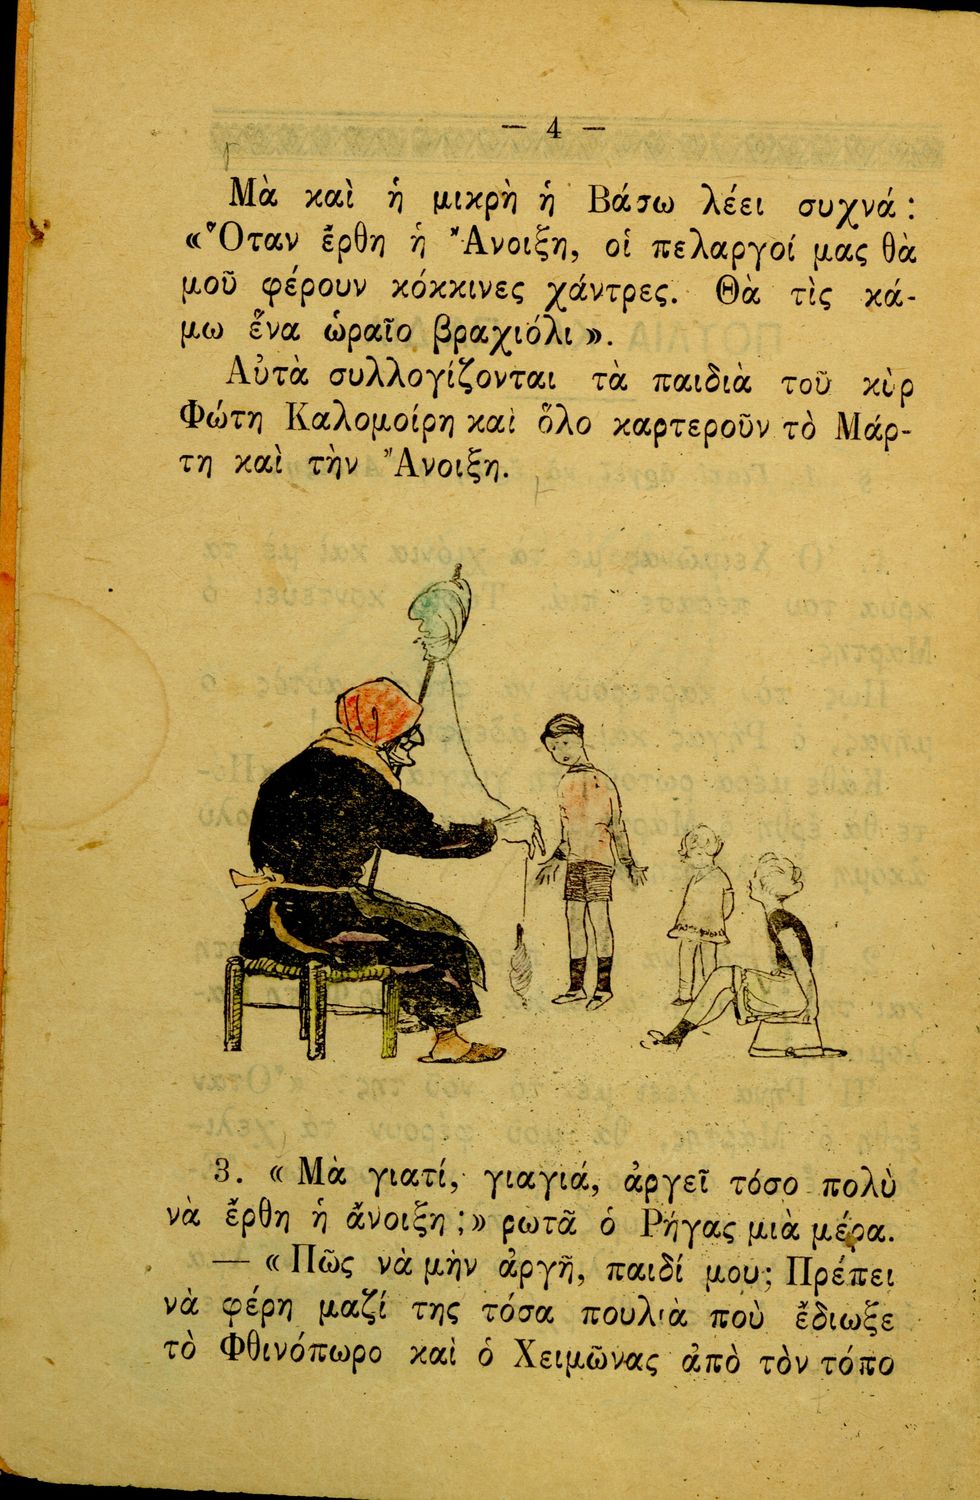 — 4 —
Μὰ καὶ ἡ μικρὴ ἡ Βάσω λέει συχνά :
«Ὅταν ἔρθη ἡ Ἄνοιξη, οἱ πελαργοί μας θὰ
μοῦ φέρουν κόκκινες χάντρες. Θὰ τὶς κά-
μω ἕνα ὡραῖο βραχιόλι».
Αὐτὰ συλλογίζονται τὰ παιδιὰ τοῦ κὺρ
Φώτη Καλομοίρη καὶ ὅλο καρτεροῦν τὸ Μάρ-
τη καὶ τὴν Ἄνοιξη.
3. «Μὰ γιατί, γιαγιά, ἀργεῖ τόσο πολὺ
νὰ ἔρθη ἡ ἄνοιξη ;» ρωτᾶ ὁ Ρήγας μιὰ μέρα.
— «Πῶς νὰ μὴν ἀργῆ, παιδί μου; Πρέπει
νὰ φέρη μαζί της τόσα πουλιὰ ποὺ ἔδιωξε
τὸ Φθινόπωρο καὶ ὁ Χειμῶνας ἀπὸ τὸν τόπο